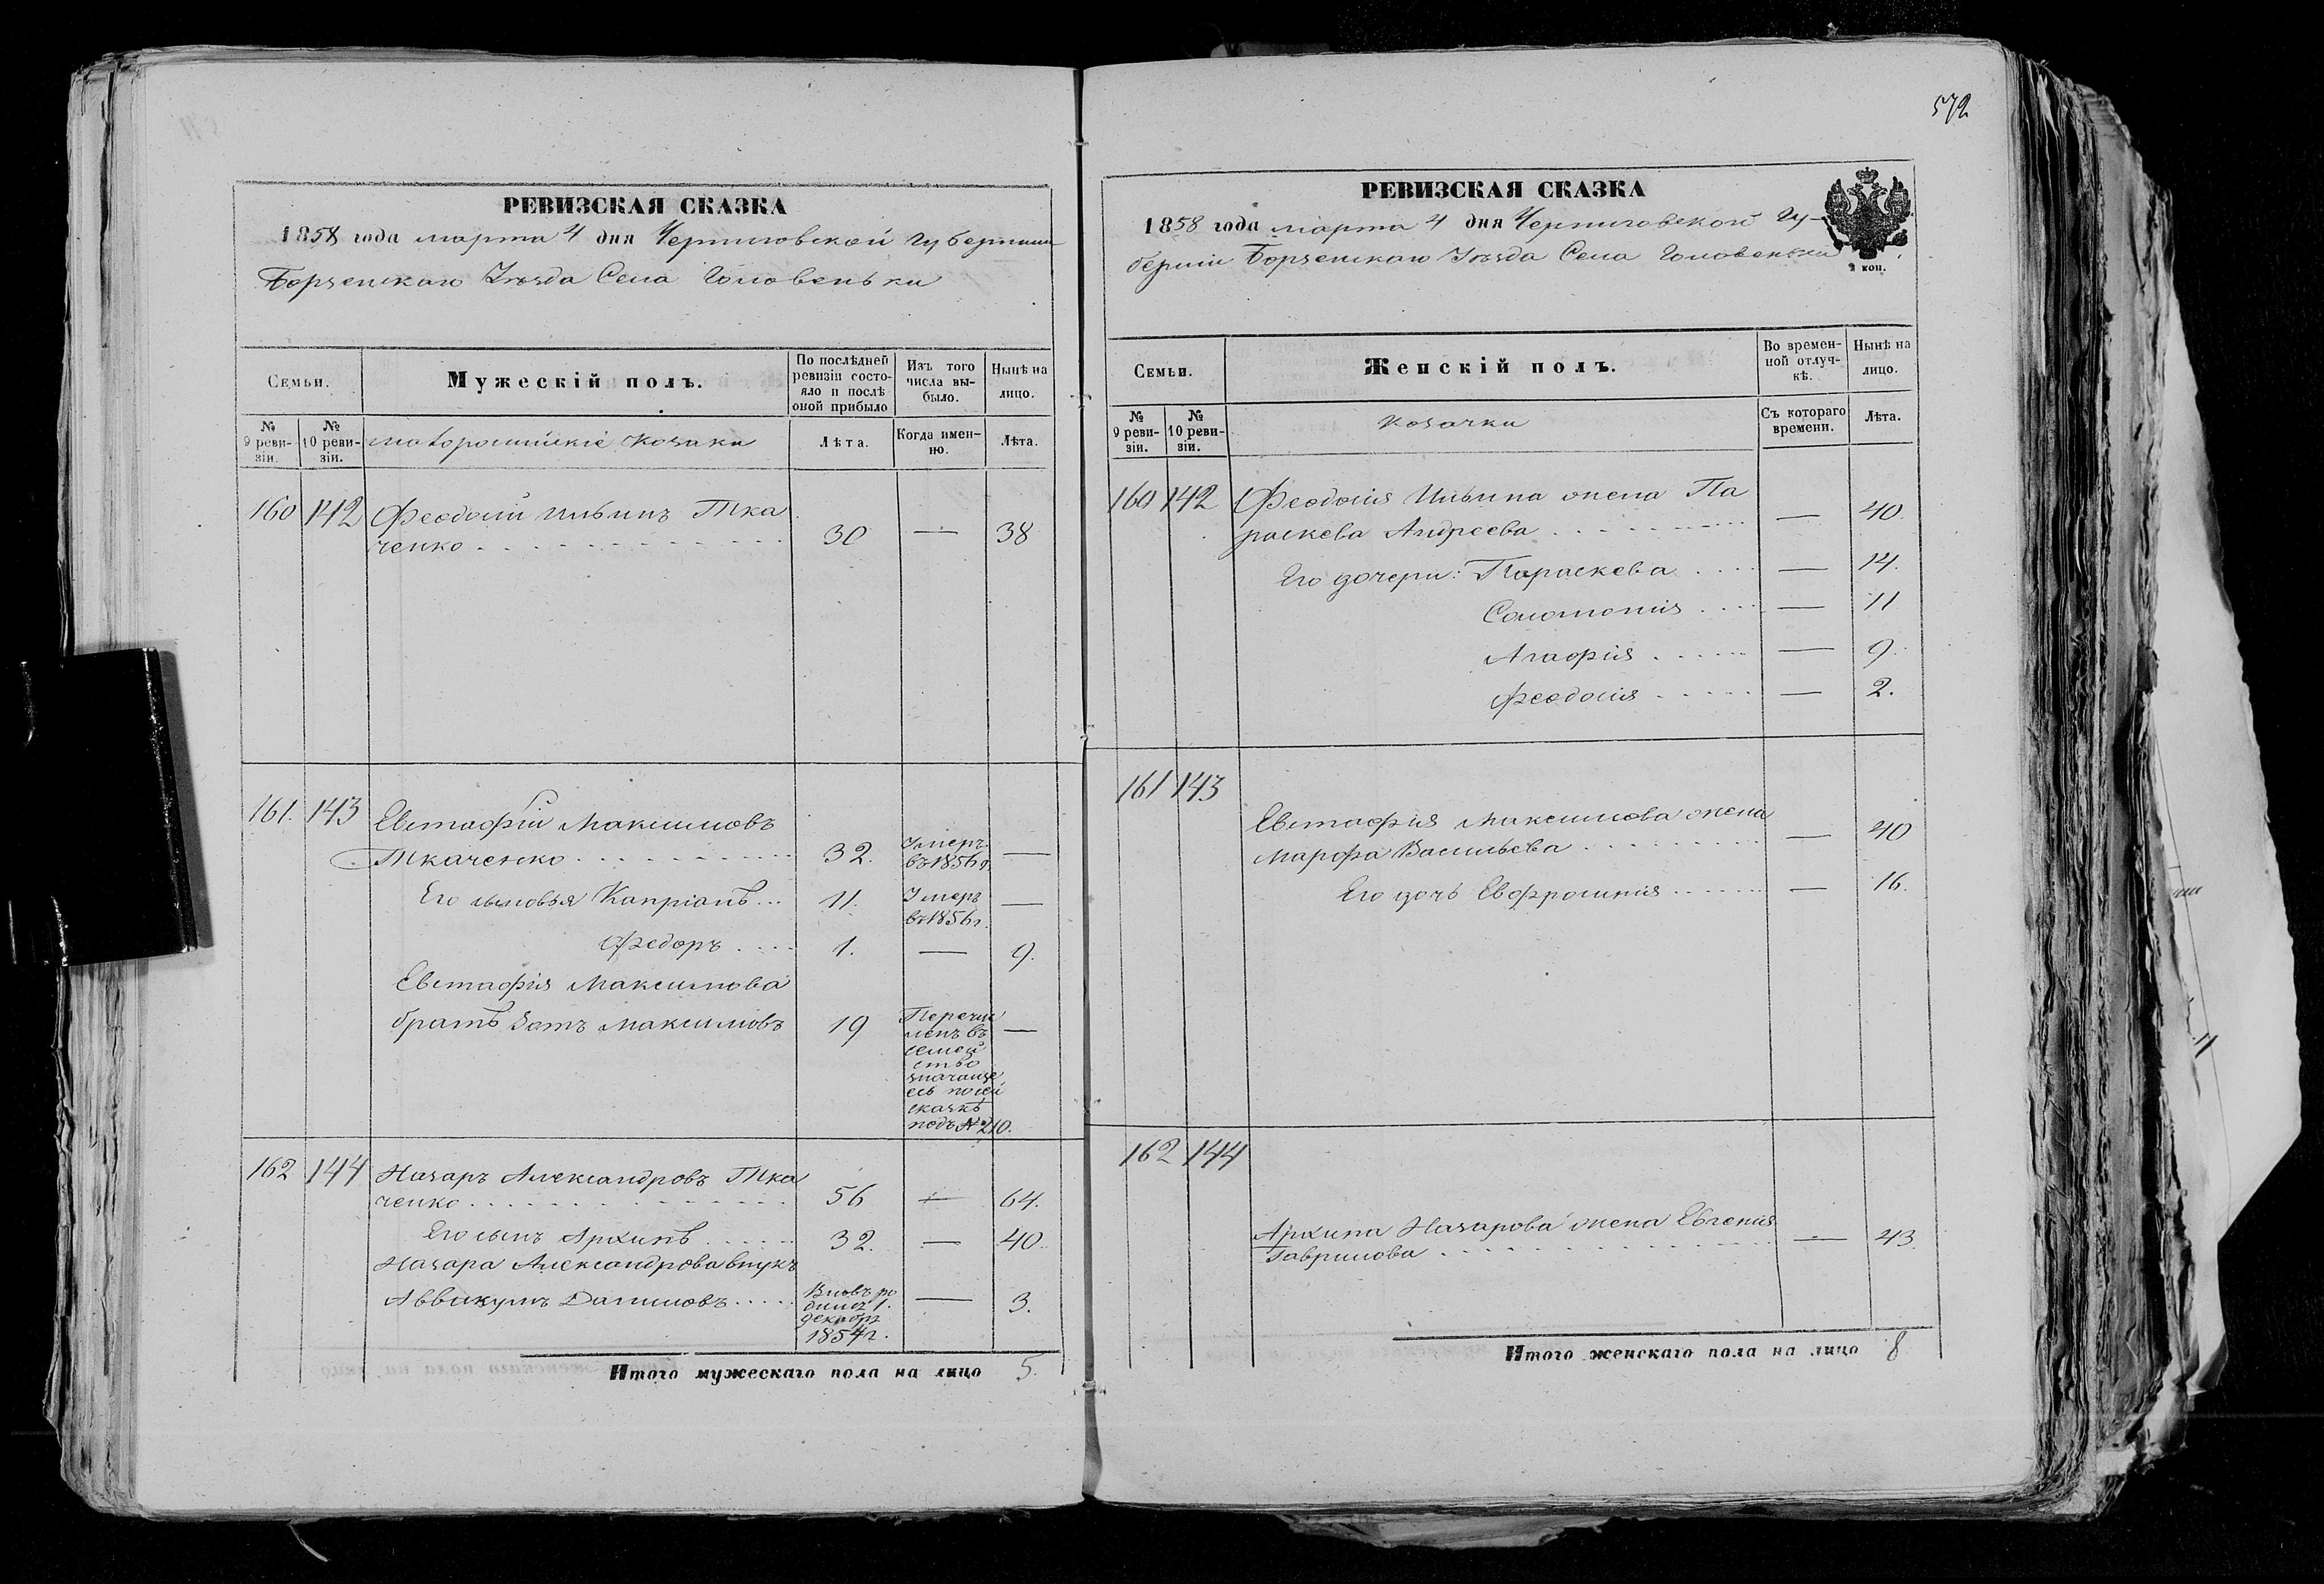 572
РЕВИЗСКАЯ СКАЗКА
1858 года марта 4 дня Черниговской Губернии
Борзенскаго Уѣзда Села Головеньки
Семьи.
Мужескій полъ.
По послѣдней
ревизіи состо-
яло и послѣ
оной прибыло
Изъ того
числа вы-
было.
Нынѣ на
лицо.
№
9 реви-
зіи.
№
10 реви-
зіи.
малороссійскіе козаки
Лѣта.
Когда имен-
но.
Лѣта.
160 142 Феодосій Ильинъ Тка
ченко 30 — 38
161. 143 Евстафій Максимовъ
Ткаченко 32. Умеръ въ 1856 г. —
Его сыновья Капріанъ 11. Умеръ въ 1856 г. —
Федоръ 1. — 9.
Евстафія Максимова
братъ Изотъ Максимовъ 19 —
Перечис
ленъ въ
семей
ство
значаще
еся по сей
сказкѣ
подъ № 210.
162 144 Назаръ Александровъ Тка
ченко 56 — 64.
Его сынъ Архипъ 32. — 40.
Назара Александрова внукъ
Аввакумъ Даниловъ — 3.
Вновь ро
дился 1.
декабр
1854 г.
Итого мужескаго пола на лицо 5.
РЕВИЗСКАЯ СКАЗКА
1858 года марта 4 дня Черниговской Гу-
берніи Борзенскаго Уѣзда Села Головеньки
2 коп.
Семьи.
Женскій полъ.
Во времен-
ной отлуч-
кѣ.
Нынѣ на
лицо.
№
9 реви-
зіи.
№
10 реви-
зіи.
Козачки
Съ котораго
времени.
Лѣта.
160 142 Феодосія Ильина жена Па
раскева Андреева — 40.
Его дочери: Параскева — 14.
Соломонія — 11
Агафія — 9.
Феодосія — 2.
161 143
Евстафія Максимова жена
Марфа Васильева — 40
Его дочь Евфросинія — 16.
162 144
Архипа Назарова жена Евгенія
Гаврилова — 43.
Итого женскаго пола на лицо 8